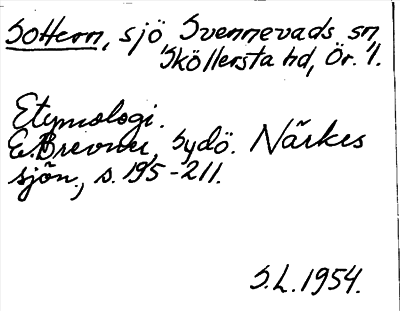 Sottern, sjö Svennevads sn,
Sköllersta hd, Ör. l.
Etymologi.
E. Brevner, Sydö. Närkes
sjön., s. 195-211.
S.L. 1954.